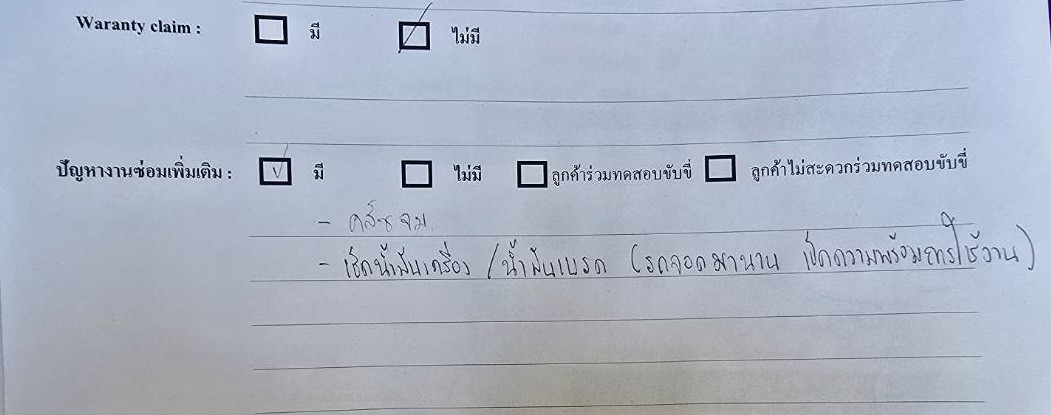 Waranty claim : ☐ มี ☑ ไม่มี
ปัญหางานซ่อมเพิ่มเติม : ☑ มี ☐ ไม่มี ☐ ลูกค้าร่วมทดสอบขับขี่ ☐ ลูกค้าไม่สะดวกร่วมทดสอบขับขี่
- คลัชจม
- เช็คน้ำมันเครื่อง / น้ำมันเบรค (รถจอดมานาน เช็คความพร้อมการใช้งาน)